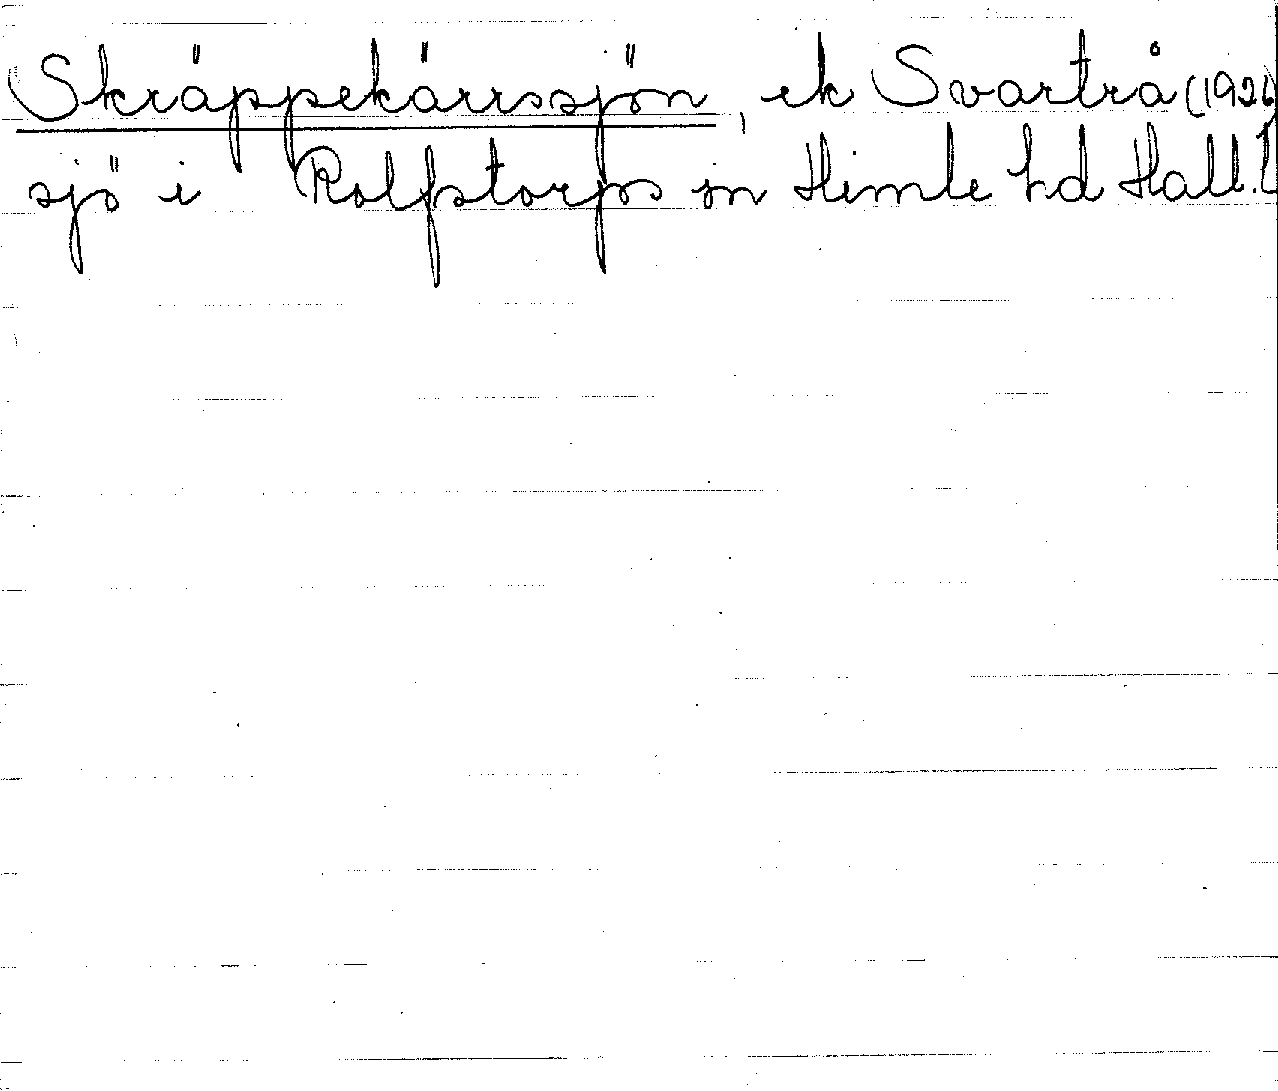 Skräppekärrssjön, ek Svartrå (1926)
sjö i Rolfstorps sn Himle hd Hall.l